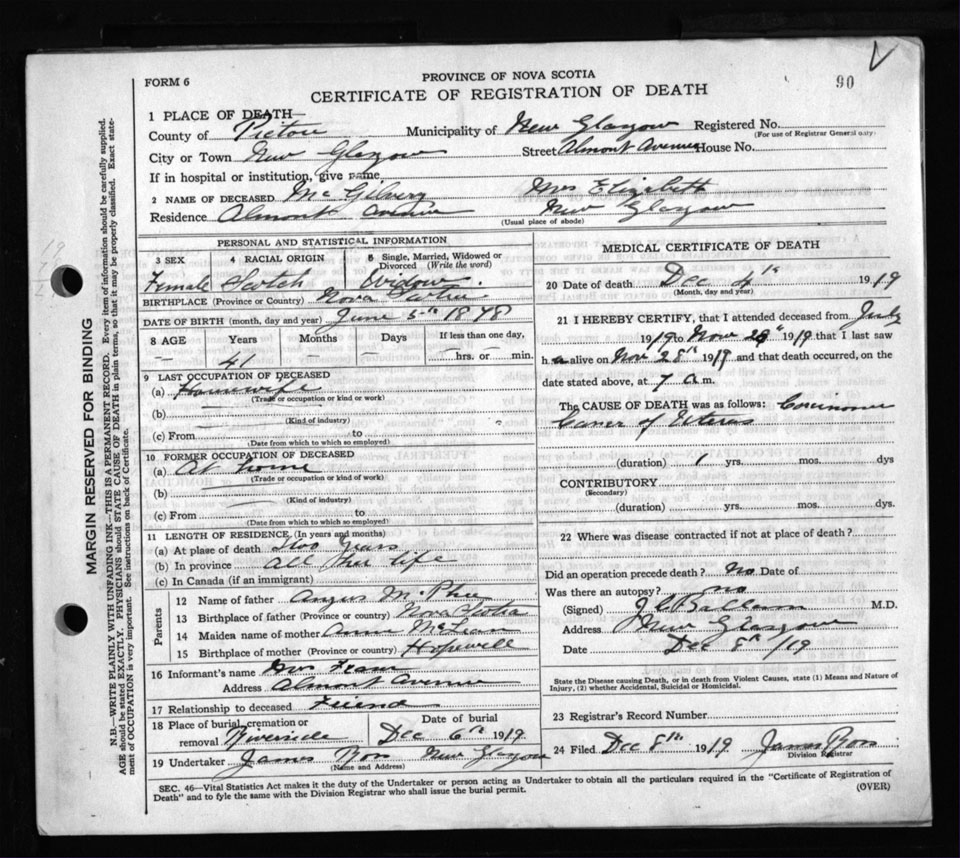 FORM 6
PROVINCE OF NOVA SCOTIA
90
CERTIFICATE OF REGISTRATION OF DEATH
1 PLACE OF DEATH
County of Pictou Municipality of New Glasgow Registered No.
(For use of Registrar General only)
City or Town New Glasgow Street Almont Avenue House No.
If in hospital or institution, give name
2 NAME OF DECEASED McGilvery Mrs Elizabeth
Residence Almont Avenue New Glasgow
(Usual place of abode)
PERSONAL AND STATISTICAL INFORMATION
3 SEX 4 RACIAL ORIGIN 5 Single, Married, Widowed or Divorced (Write the word)
Female Scotch Widow
BIRTHPLACE (Province or Country) Nova Scotia
DATE OF BIRTH (month, day and year) June 5th 1878
8 AGE Years Months Days If less than one day,
— 41 — — hrs. or min.
9 LAST OCCUPATION OF DECEASED
(a) Housewife
(Trade or occupation or kind or work)
(b)
(Kind of industry)
(c) From to
(Date from which to which so employed)
10 FORMER OCCUPATION OF DECEASED
(a) At home
(Trade or occupation or kind or work)
(b)
(Kind of industry)
(c) From to
(Date from which to which so employed)
11 LENGTH OF RESIDENCE (In years and months)
(a) At place of death Two Years
(b) In province All her life
(c) In Canada (if an immigrant)
Parents
12 Name of father Angus McPhee
13 Birthplace of father (Province or country) Nova Scotia
14 Maiden name of mother Annie McLean
15 Birthplace of mother (Province or country) Hopewell
16 Informant's name Mrs
Address Almont Avenue
17 Relationship to deceased Friend
18 Place of burial, cremation or removal Riverside
Date of burial Dec 6th 1919
19 Undertaker James Ross New Glasgow
(Name and Address)
MEDICAL CERTIFICATE OF DEATH
20 Date of death Dec 4th 1919
(Month, day and year)
21 I HEREBY CERTIFY, that I attended deceased from July
1919 to Nov 28th 1919 that I last saw
h er alive on Nov 28th 1919 and that death occurred, on the
date stated above, at 7 a.m.
The CAUSE OF DEATH was as follows:
Cancer of Uterus
(duration) 1 yrs. mos. dys
CONTRIBUTORY
(Secondary)
(duration) yrs. mos. dys.
22 Where was disease contracted if not at place of death?
Did an operation precede death? No Date of
Was there an autopsy? no
(Signed) M.D.
Address New Glasgow
Date Dec 8th /19
State the Disease causing Death, or in death from Violent Causes, state (1) Means and Nature of
Injury, (2) whether Accidental, Suicidal or Homicidal.
23 Registrar's Record Number
24 Filed Dec 8th 1919 James Ross
Division Registrar
SEC. 46—Vital Statistics Act makes it the duty of the Undertaker or person acting as Undertaker to obtain all the particulars required in the "Certificate of Registration of
Death" and to fyle the same with the Division Registrar who shall issue the burial permit.
(OVER)
MARGIN RESERVED FOR BINDING
N.B.—WRITE PLAINLY WITH UNFADING INK—THIS IS A PERMANENT RECORD. Every item of information should be carefully supplied.
AGE should be stated EXACTLY. PHYSICIANS should STATE CAUSE OF DEATH in plain terms, so that it may be properly classified. Exact state-
ment of OCCUPATION is very important. See instructions on back of Certificate.